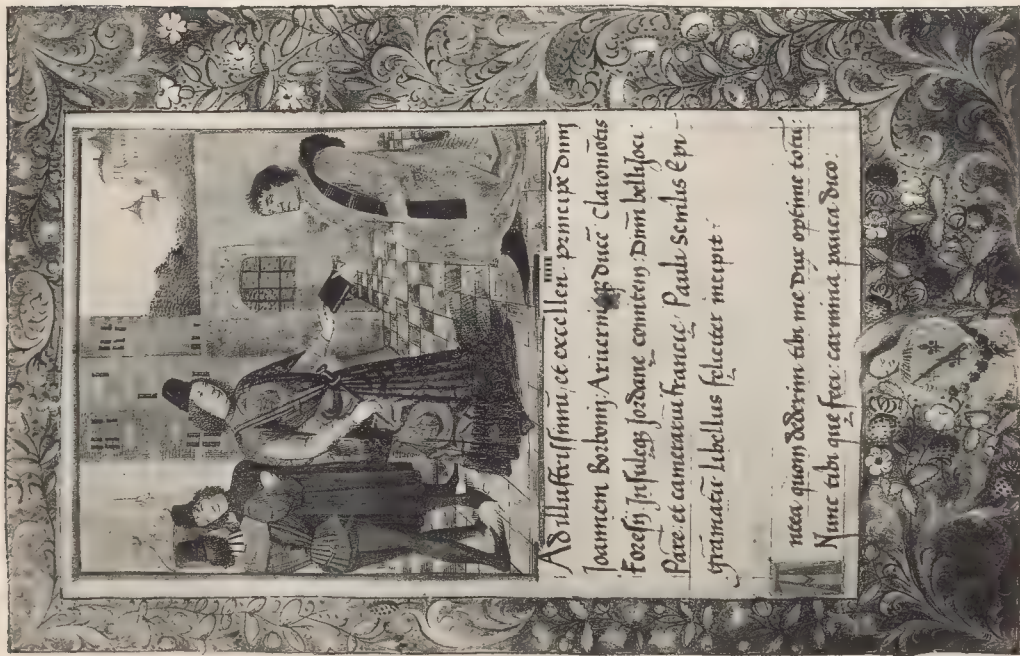 Ad illustrissimū, et excellen. principē Dnm̄
Joannem Borbonij, Arverniē qȝ ducē Claromōtis
Foresij Insuleqȝ Jordane comitem, Dnm̄ bellijoci.
Parē et camerariū francie. Pauli senilis Epi-
gramatū Libellus feliciter incipit.
ncta quom dederim tibi me Dux optime totū:
Nunc tibi que feci carmina pauca dico.